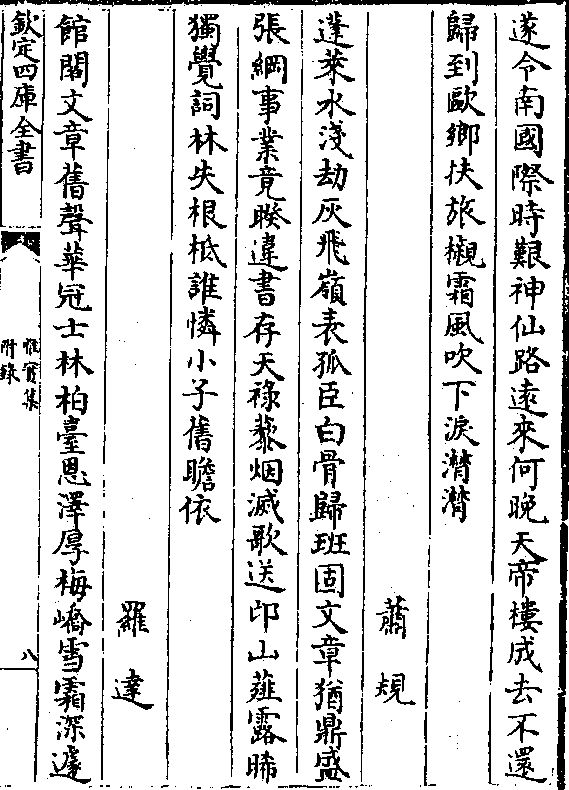 遂令南國際時艱神仙路逺來何晚天帝樓成去不還
歸到歐鄉扶旅櫬霜風吹下淚潸潸
蕭規
蓬萊水淺劫灰飛嶺表孤臣白骨歸班固文章猶鼎盛
張綱事業竟暌違書存天祿藜烟滅歌送印山薤露晞
獨覺詞林失根柢誰憐小子舊瞻依
羅達
館閣文章舊聲華冠士林柏臺恩澤厚梅嶠雪霜深遽
欽定四庫全書
惟實集
附錄
八